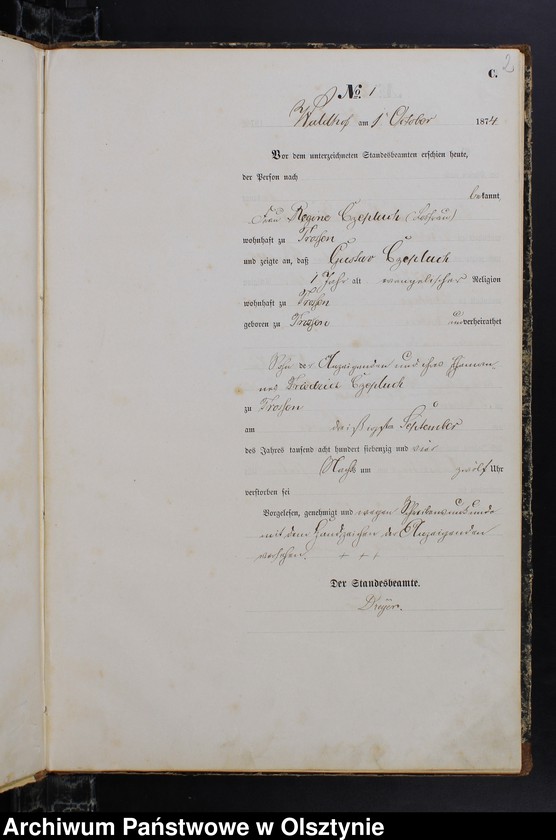 2
C.
No. 1
Waldhof am 1 October 1874.
Vor dem unterzeichneten Standesbeamten erschien heute,
der Person nach
bekannt
Frau Regine Czepluch
wohnhaft zu Trossen
und zeigte an, daß Gustav Czepluch
1 Jahr alt evangelischer Religion
wohnhaft zu Trossen
geboren zu Trossen unverheirathet
Sohn der Anzeigenden und ihres Eheman-
nes Friedrich Czepluch
zu Trossen
am dreißigsten September
des Jahres tausend acht hundert siebenzig und vier
Nachts um zwölf Uhr
verstorben sei
Vorgelesen, genehmigt und wegen Schreibensunkunde
mit dem Handzeichen der Anzeigenden
versehen. + + +
Der Standesbeamte.
Archiwum Państwowe w Olsztynie